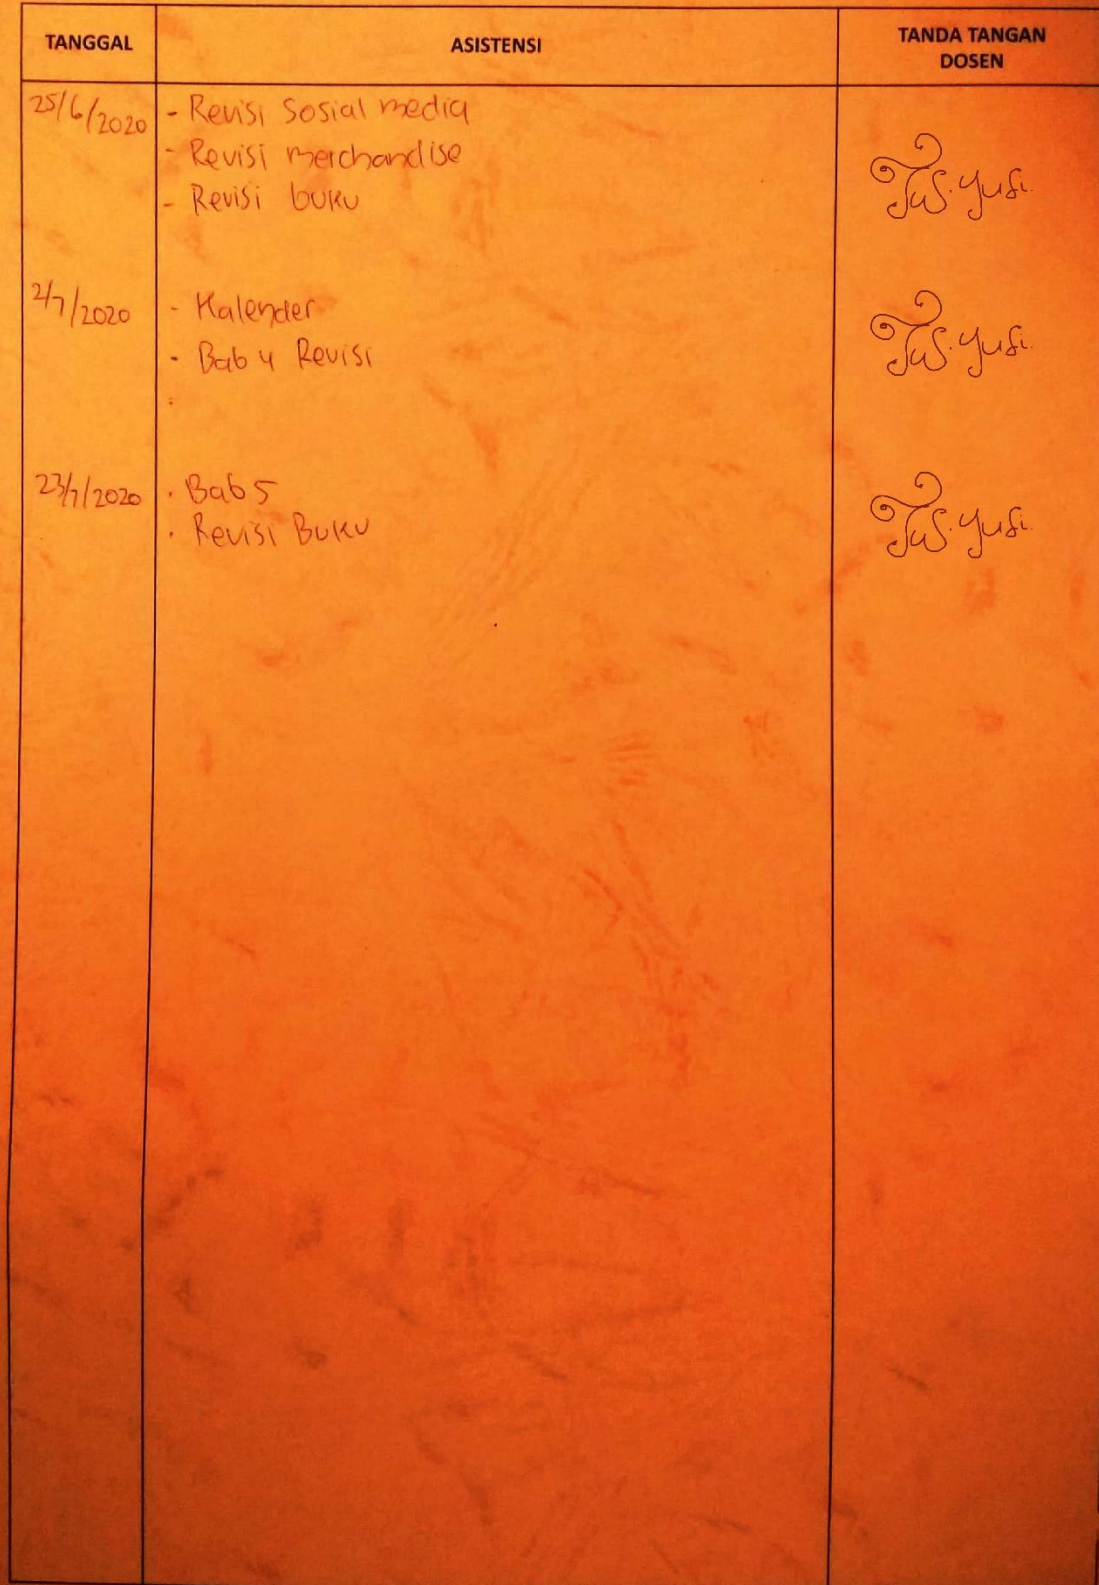 TANGGAL ASISTENSI TANDA TANGAN
DOSEN
25/6/2020 - Revisi Sosial media
- Revisi merchandise
- Revisi buku
2/7/2020 - Kalender
- Bab 4 Revisi
23/7/2020 . Bab 5
. Revisi Buku